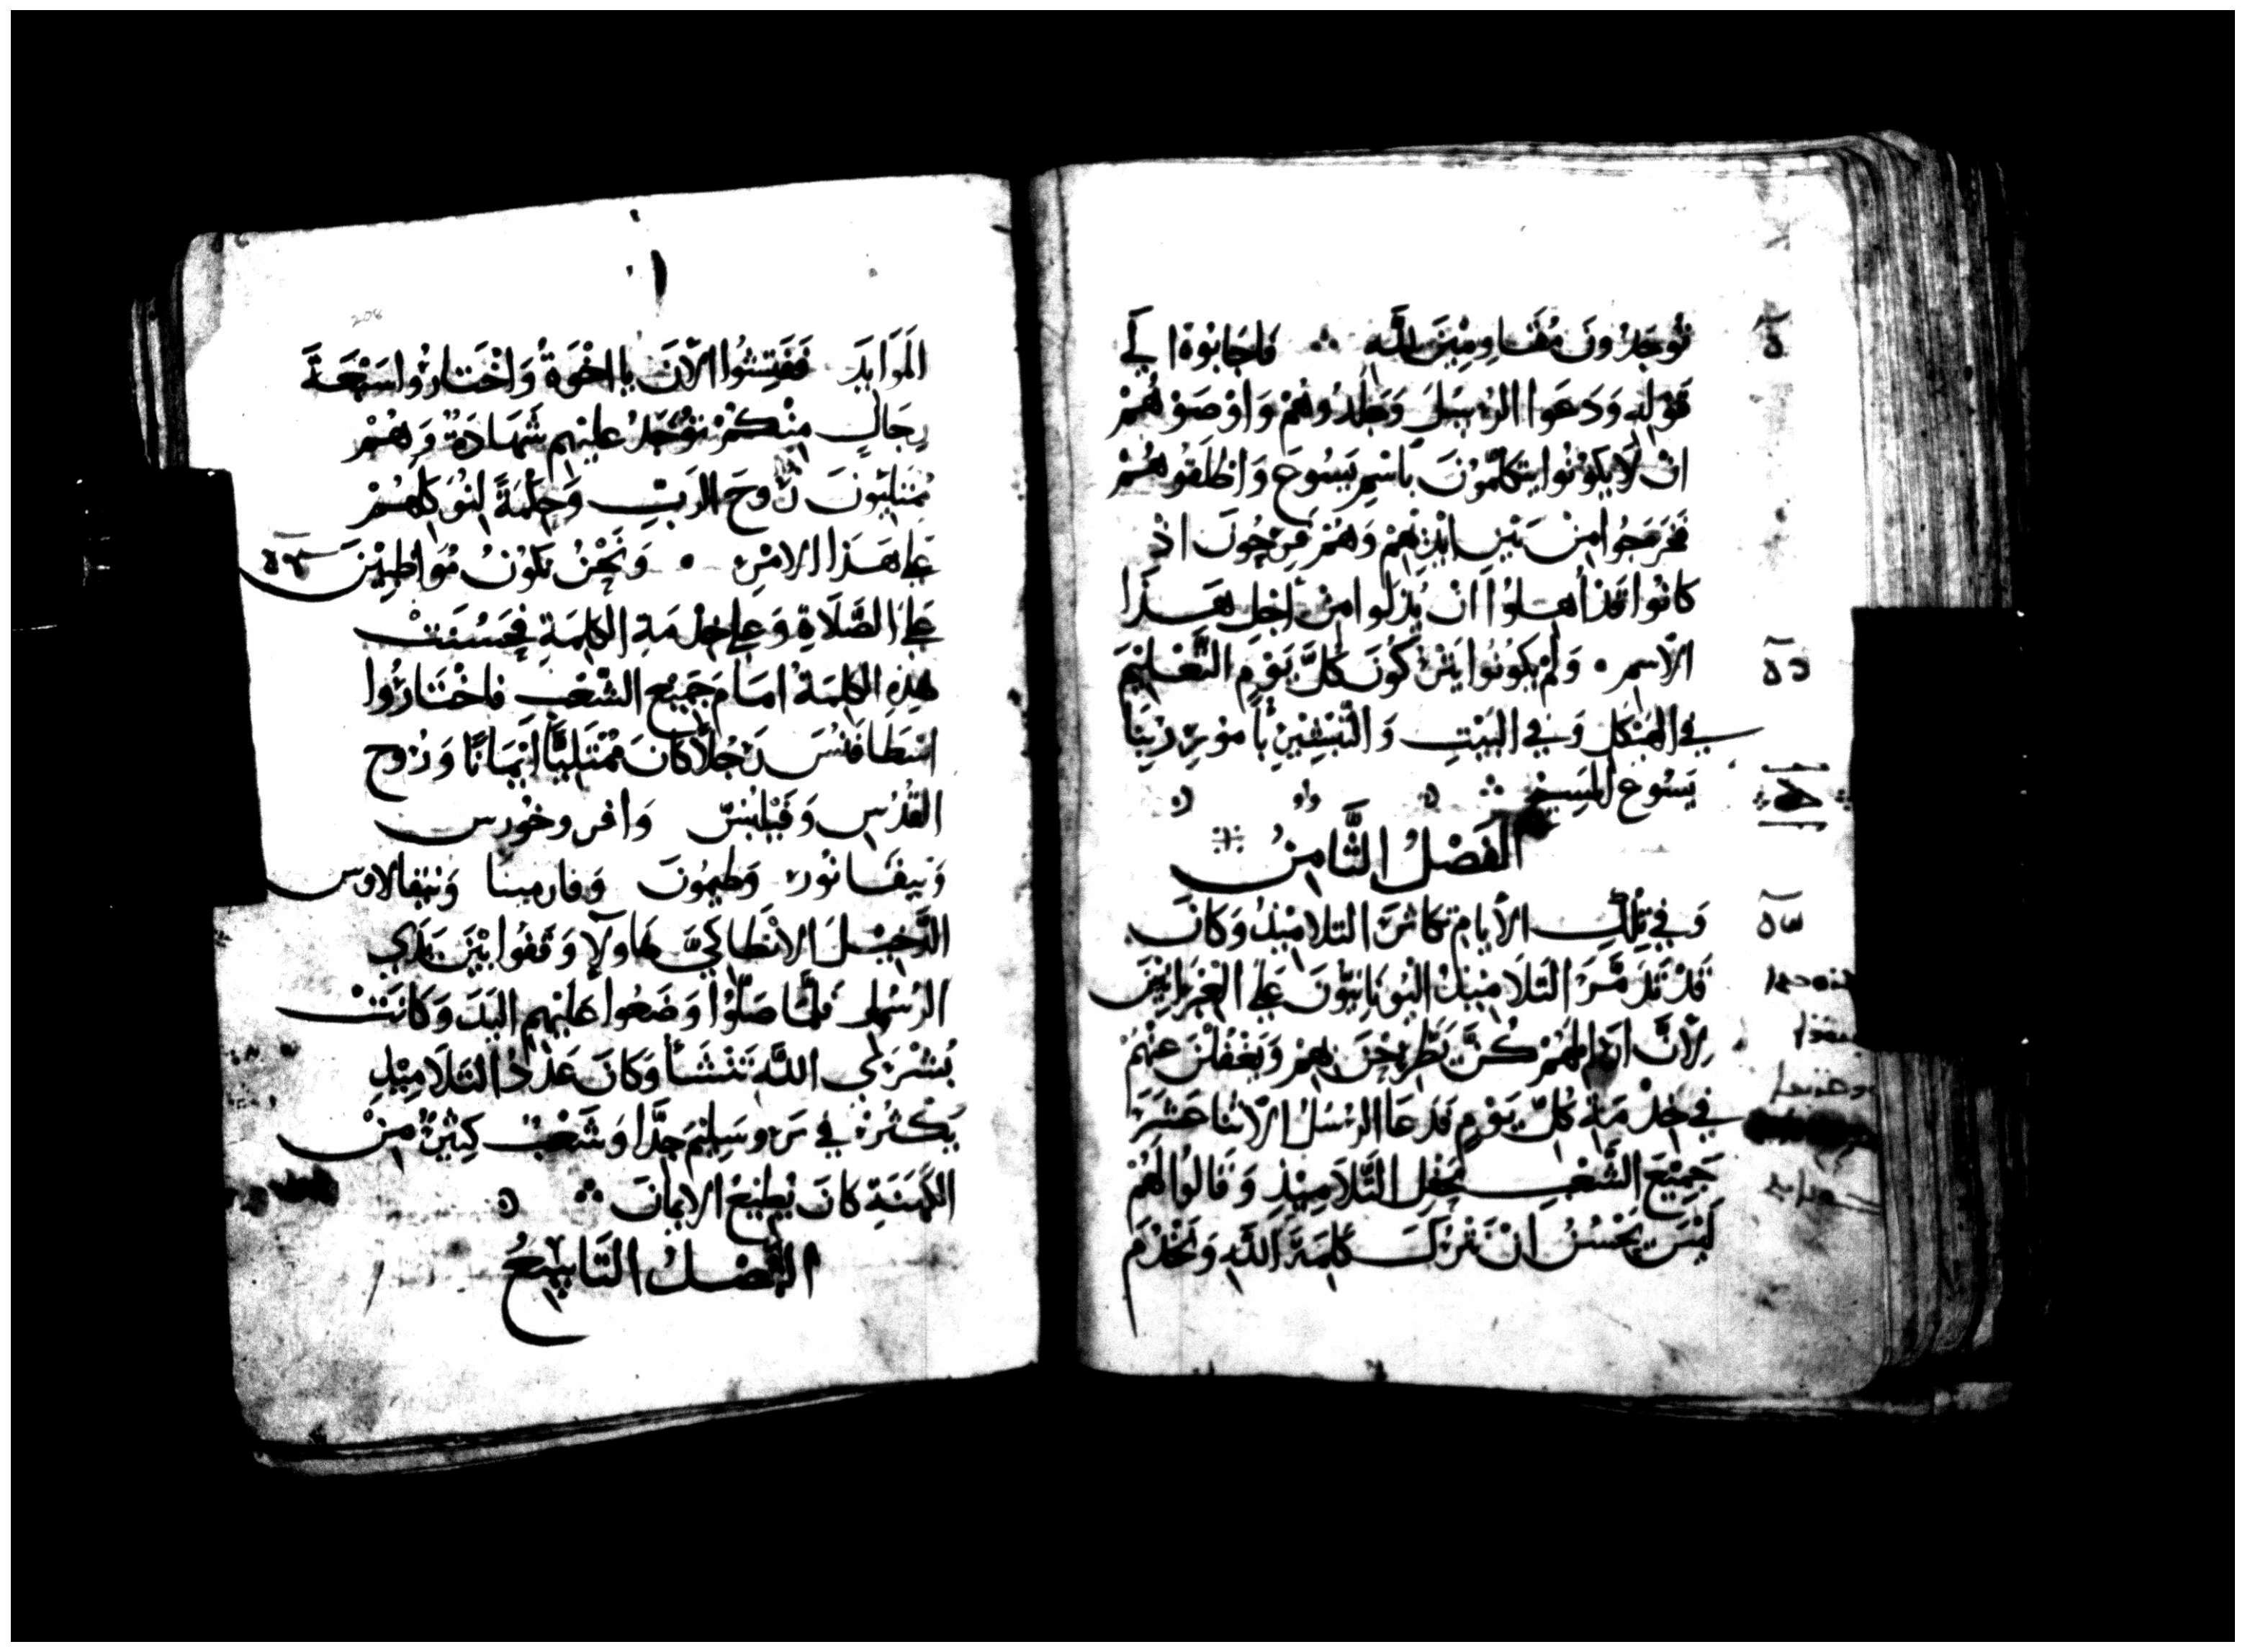 تُوجَدُونَ مُقَاوِمِيْنَ للّٰهِ ∴ فاجَابُوهُ الي
قَوْلِهِ وَدَعَوا الرُسُلَ وَجَلَدُوهُمْ وَاوْصَوْهُمْ
انْ لَا يَكُونُوا يَتكَلَّمُوْنَ بَاسْمِ يَسُوعَ وَاطْلَقُوهُمْ
فَخَرَجُوا مِنْ بَيْنِ ايْدِيْهِمْ وَهُمْ فَرِحُونَ اذْ
كانُوا قَدْ أُهِلُوْا انْ يُذَلوا مِنْ اجْلِ هَذَا
الاسْمِ ۰ وَلَمْ يَكُونُوا يَتْرُكُونَ كُلَّ يَوْمٍ التَّعْلِيْمَ
في الهَيْكلِ وَفي البَيْتِ وَالتَّبْشِيْرِ بأمْرِ رَبِنَا
يَسُوع المَسِيحِ ∴
الفَصْلُ الثَّامِنُ
وَفِي تِلْكَ الأيامِ تَكاثَرَ التلامِيْذُ وَكَانَ
قَدْ تَذَمَّرَ التَلَامِيْذُ اليُونَانِيُّونَ عَلي العِبْرَانِيْيَن
لِأنَّ ارَامِلَهُمْ كُنَّ يُطْرَحْنَ بهِمْ وَيَغْفُلْنَ عنْهُمْ
في خِدْمَةِ كُلِّ يَوْمٍ فدَعَا الرُسُلُ الاثنَا عَشَرَ
جَمِيْعَ الشَّعْبِ مَحْفِلِ التَّلَامِيْذِ وَقَالُوا لَهُمْ
لَيْسَ يَحْسُنُ انْ نَتْرُكَ كَلِمَةَ اللّٰهِ وَنَخْدُمَ
208
المَوَايدَ فَفَتِشُوا الآنَ يا اخْوَةُ وَاخْتَارُوا سَبْعَةَ
رِجَالٍ مِنْكُمْ تُوْجَدُ عَليْهِم شَهَادَةٌ وَهُمْ
مُمْتَلِيُونَ رُوحَ الرَبِّ وَحِكْمَةً لِنُوَكِلَهُمْ
عَلى هَذَا الامْرِ ۰ وَنَحْنُ نكُونُ مُوَاظِبِيْنَ
عَلَى الصَّلَاةِ وَعلي خِدْمَةِ الكَلِمَةِ فحَسُنَتْ
هٰذِهِ الكلِمَةُ امَامَ جَمِيْع الشَعْبِ فاخْتَارُوا
اسْطَافَنُسَ رَجُلاً كَانَ مُمْتَلِيًا ايْمَانًا وَرُوحَ
القُدُسِ وَفَيْلِبُسَ وَافروخورس
وَنِيقَانُورَ وَطيمُونَ وَفارمينا وَنيقالاوس
الدَّخِيْلَ الانْطَاكِيَّ هَاولآِ وَقَفُوا بَيْنَ يَدَي
الرُسُلِ فَلمَّا صَلَّوْا وَضَعُوا عَلَيْهِمِ اليَدَ وَكَانَتْ
بُشْرَي اللّٰهِ تَنْشَأُ وَكَانَ عَدَدُ التَلَامِيْذِ
يَكْثُرُ في يَرُوسَلِيْمَ جِدًّا وَشَعْبٌ كَثِيْرٌ مِنْ
الكَهَنَةِ كَانَ يُطِيْعُ الايمانَ ∴
الفَصْلُ التَّاسِعُ